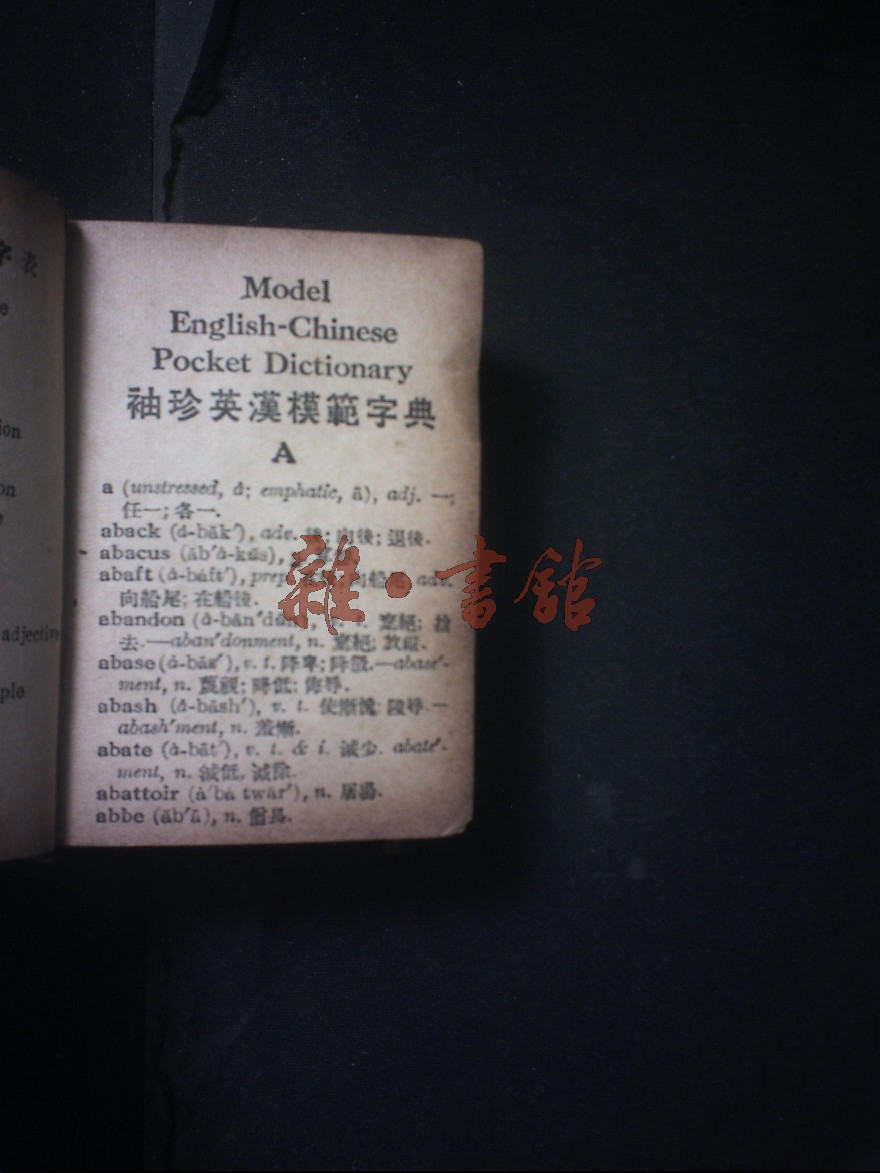 字表
e
ion
on
e
adjective
ple
Model
English-Chinese
Pocket Dictionary
袖珍英漢模範字典
A
a (unstressed, ȧ; emphatic, ā), adj. 一;
任一; 各一.
aback (ȧ-băk′), adv. 後; 向後; 退後.
abacus (ăb′ȧ-kŭs),
abaft (ȧ-bȧft′), prep. 向船尾 adv.
向船尾; 在船後.
abandon (ȧ-băn′dŭn), v. t. 棄絕; 捨
去.—aban′donment, n. 棄絕; 放縱.
abase (ȧ-bās′), v. t. 降卑; 降級.—abase′-
ment, n. 降低; 侮辱.
abash (ȧ-băsh′), v. t. 使慚愧; 陵辱.—
abash′ment, n. 羞慚.
abate (ȧ-bāt′), v. t. & i. 減少. abate′-
ment, n. 減低, 減除.
abattoir (ȧ′bȧ twär′), n. 屠場.
abbe (ăb′ā), n. 僧長.
雜·書館